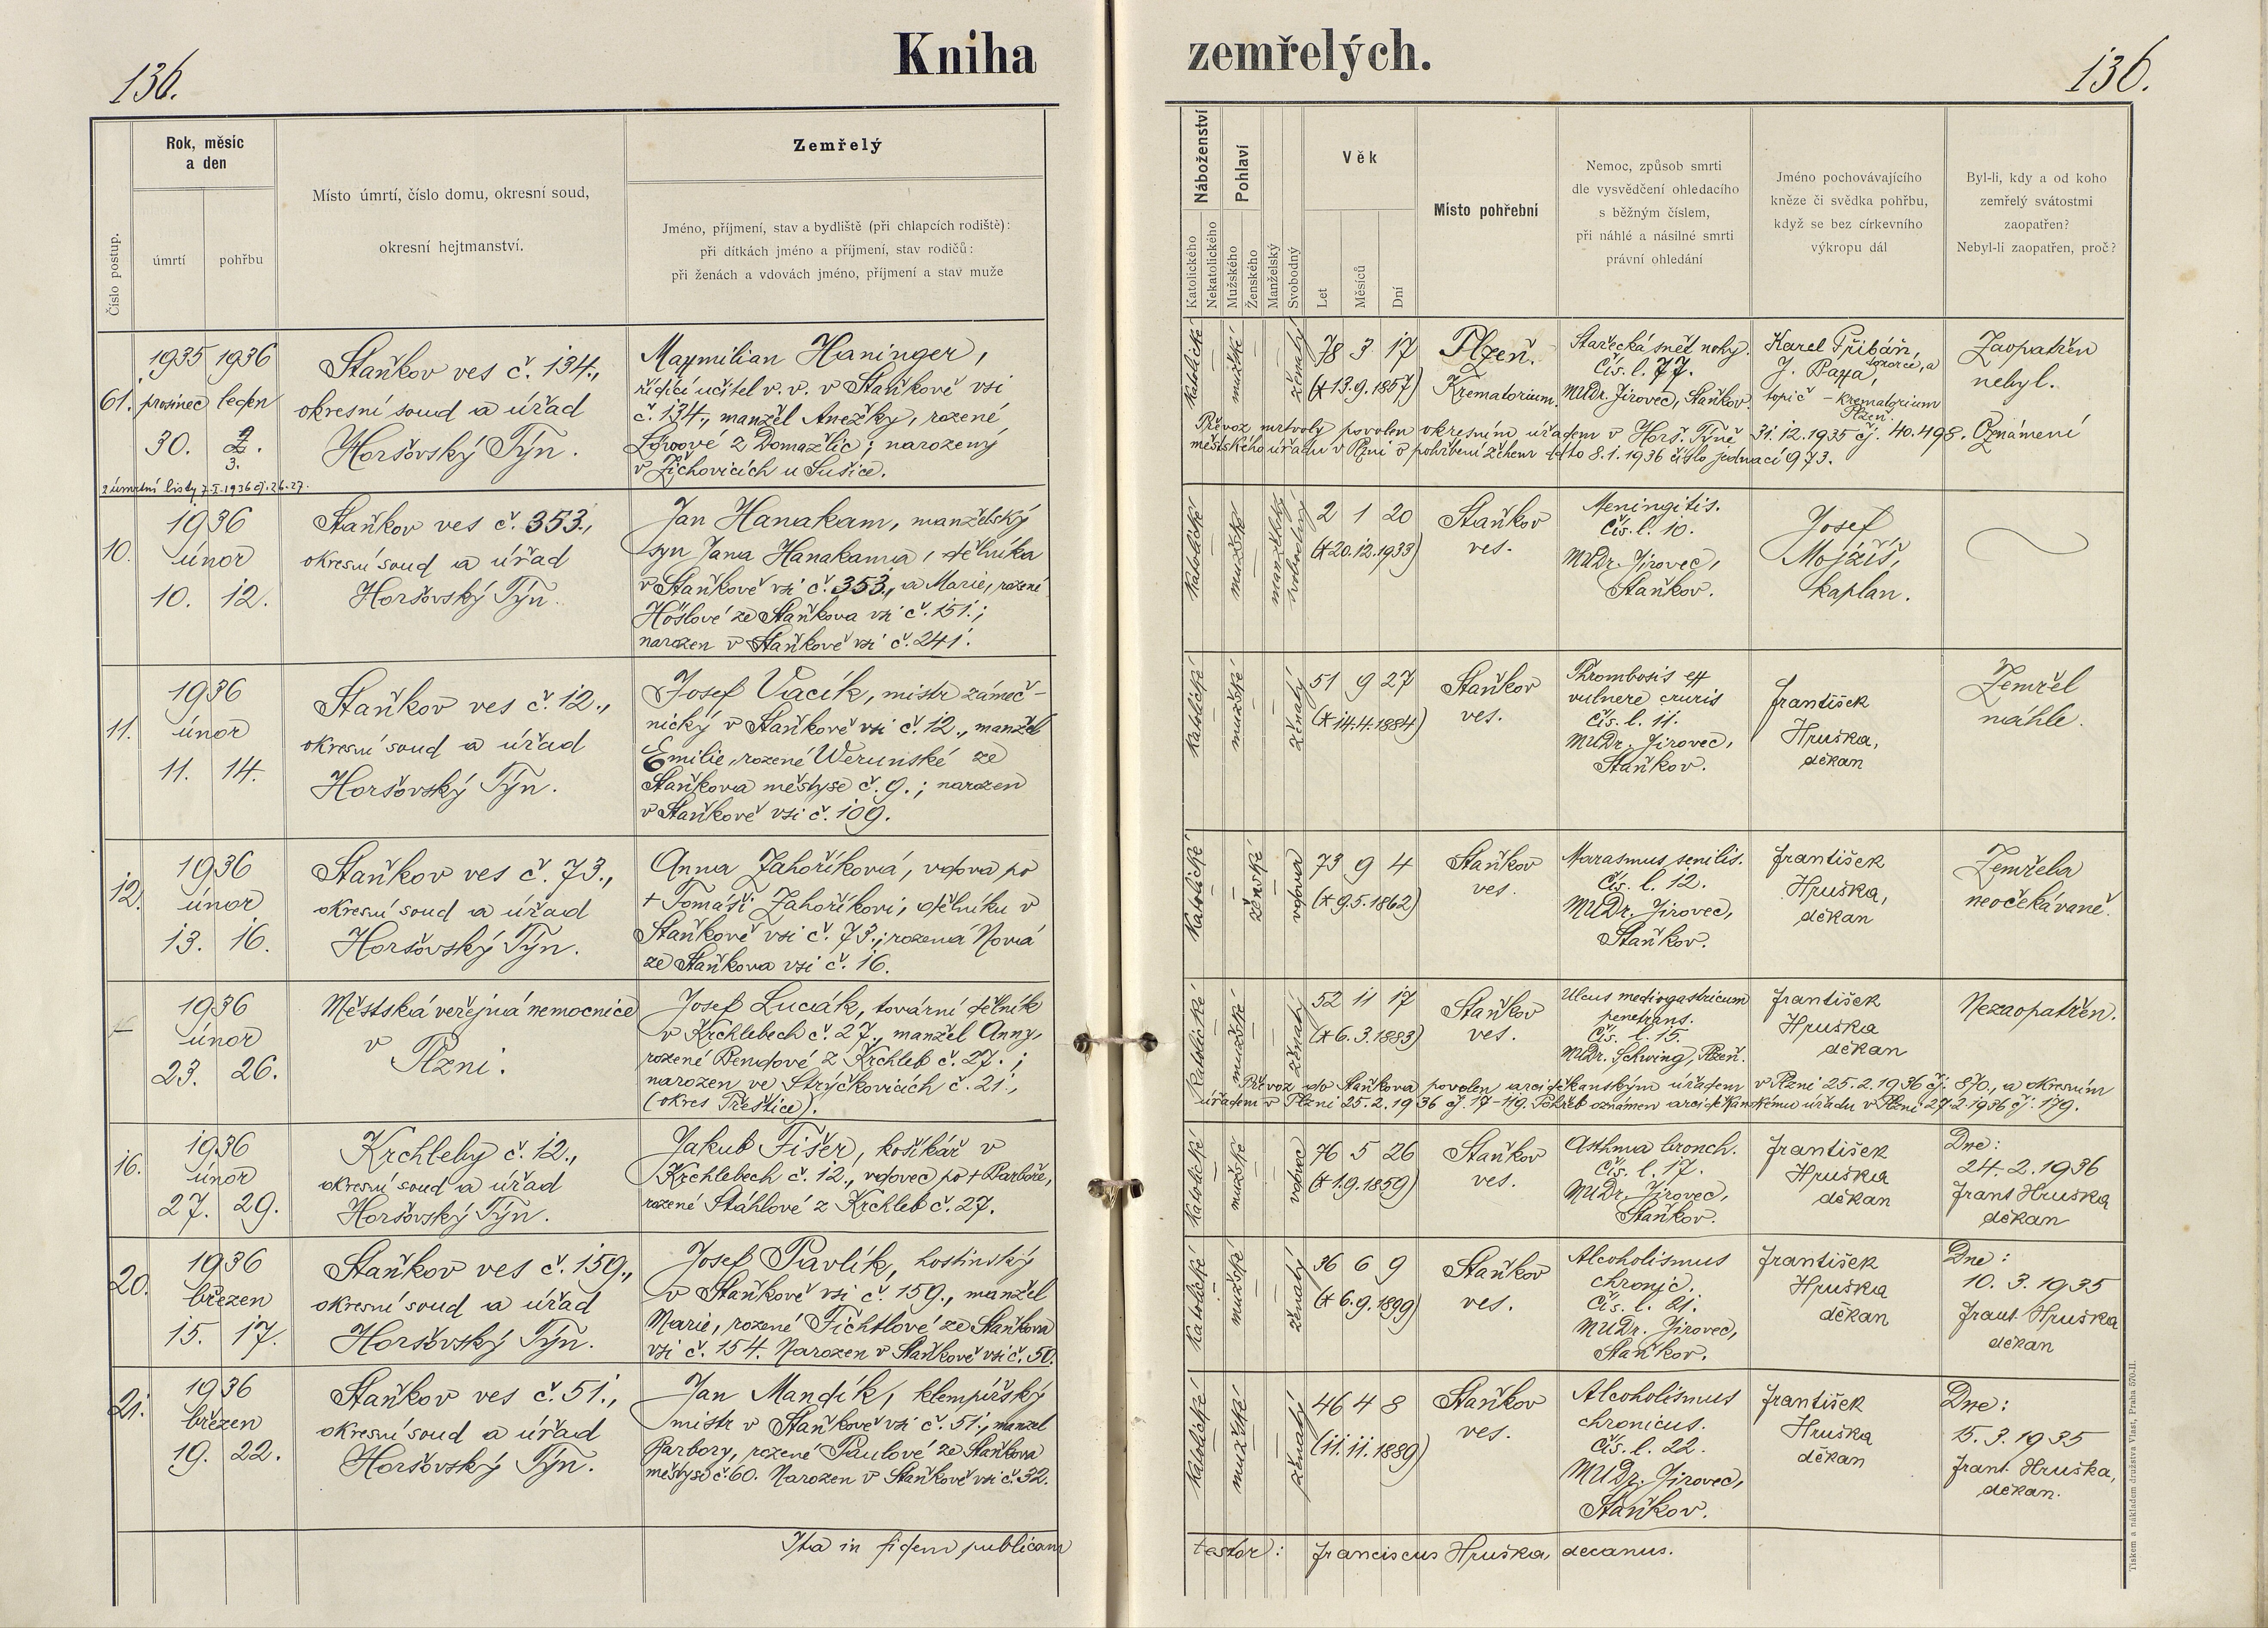 136.
Kniha
zemřelých.
136.
Číslo postup.
Rok, měsíc
a den
úmrtí
pohřbu
Místo úmrtí, číslo domu, okresní soud,
okresní hejtmanství.
Zemřelý
Jméno, příjmení, stav a bydliště (při chlapcích rodiště):
při dítkách jméno a příjmení, stav rodičů:
při ženách a vdovách jméno, příjmení a stav muže
Náboženství
Katolického
Nekatolického
Pohlaví
Mužského
Ženského
Manželský
Svobodný
Věk
Let
Měsíců
Dní
Místo pohřební
Nemoc, způsob smrti
dle vysvědčení ohledacího
s běžným číslem,
při náhlé a násilné smrti
právní ohledání
Jméno pochovávajícího
kněze či svědka pohřbu,
když se bez církevního
výkropu dál
Byl-li, kdy a od koho
zemřelý svátostmi
zaopatřen?
Nebyl-li zaopatřen, proč?
61.
1935 1936
prosinec leden
30. 2.
3.
2 úmrtní listy 7.I.1936 čj. 26.27.
Staňkov ves č. 134.,
okresní soud a úřad
Horšovský Týn.
Maxmilian Haninger,
řídící učitel v. v. v Staňkově vsi
č. 134., manžel Anežky, rozené
z Domažlic; narozený
v Žichovicích u Sušice.
Katolické
mužské
ženatý
78 3 17
(* 13.9.1857)
Plzeň.
Krematorium.
Stařecká sněť nohy.
Čís. l. 77.
MUDr. Jirovec, Staňkov.
Karel Přibáň,
J. Paxa,
topič – krematorium
Plzeň.
Zaopatřen
nebyl.
Převoz mrtvoly povolen okresním úřadem v Horš. Týně 31.12.1935 čj. 40.498. Oznámení
městského úřadu v Plzni o pohřbení žehem dtto 8.1.1936 číslo jednací 973.
10.
1936
únor
10. 12.
Staňkov ves č. 353.,
okresní soud a úřad
Horšovský Týn.
Jan Hanakam, manželský
syn Jana Hanakama, dělníka
v Staňkově vsi č. 353., a Marie, rozené
Höslové ze Staňkova vsi č. 151.;
narozen v Staňkově vsi č. 241.
Katolické
mužské
manželský
svobodný
2 1 20
(* 20.12.1933)
Staňkov
ves.
Meningitis.
Čís. l. 10.
MUDr. Jirovec,
Staňkov.
Josef
Mojžíš,
kaplan.
11.
1936
únor
11. 14.
Staňkov ves č. 12.,
okresní soud a úřad
Horšovský Týn.
Josef Vacík, mistr zámeč-
nický v Staňkově vsi č. 12., manžel
Emilie, rozené Werunské ze
Staňkova městyse č. 9.; narozen
v Staňkově vsi č. 109.
Katolické
mužské
ženatý
51 9 27
(* 14.4.1884)
Staňkov
ves.
Thrombosis ex
vulnere cruris
Čís. l. 11.
MUDr. Jirovec,
Staňkov.
František
Hruška,
děkan
Zemřel
náhle.
12.
1936
únor
13. 16.
Staňkov ves č. 73.,
okresní soud a úřad
Horšovský Týn.
Anna Zahoříková, vdova po
+ Tomáši Zahoříkovi, dělníku v
Staňkově vsi č. 73.; rozená Nová
ze Staňkova vsi č. 16.
Katolické
ženské
vdova
73 9 4
(* 9.5.1862)
Staňkov
ves.
Marasmus senilis.
Čís. l. 12.
MUDr. Jirovec,
Staňkov.
František
Hruška,
děkan
Zemřela
neočekávaně.
1936
únor
23. 26.
Městská veřejná nemocnice
v
Plzni.
Josef Lucák, tovární dělník
v Krchlebech č. 27., manžel Anny,
rozené Bendové z Krchleb č. 27.;
narozen ve Strýčkovicích č. 21.,
(okres Přeštice).
Katolické
mužské
ženatý
52 11 17
(* 6.3.1883)
Staňkov
ves.
Ulcus mediogastricum
penetrans.
Čís. l. 15.
MUDr. Schwing, Plzeň.
František
Hruška
děkan
Nezaopatřen.
Převoz do Staňkova povolen arciděkanským úřadem v Plzni 25.2.1936 čj. 870., a okresním
úřadem v Plzni 25.2.1936 čj. 17-119. Pohřeb oznámen arciděkanskému úřadu v Plzni 27.2.1936 čj. 179.
16.
1936
únor
27. 29.
Krchleby č. 12.,
okresní soud a úřad
Horšovský Týn.
Jakub Fišer, košíkář v
Krchlebech č. 12., vdovec po + Barboře,
rozené Stáhlové z Krchleb č. 27.
Katolické
mužské
vdovec
76 5 26
(* 1.9.1859)
Staňkov
ves.
Asthma bronch.
Čís. l. 17.
MUDr. Jirovec,
Staňkov.
František
Hruška
děkan
Dne:
24.2.1936
Frant Hruška
děkan
20.
1936
březen
15. 17.
Staňkov ves č. 159.,
okresní soud a úřad
Horšovský Týn.
Josef Pavlík, hostinský
v Staňkově vsi č. 159., manžel
Marie, rozené Fichtlové ze Staňkova
vsi č. 154. Narozen v Staňkově vsi č. 50.
Katolické
mužské
ženatý
36 6 9
(* 6.9.1899)
Staňkov
ves.
Alcoholismus
chronic.
Čís. l. 21.
MUDr. Jirovec,
Staňkov.
František
Hruška
děkan
Dne:
10. 3. 1935
Frant. Hruška
děkan
21.
1936
březen
19. 22.
Staňkov ves č. 51.,
okresní soud a úřad
Horšovský Týn.
Jan Mandík, klempířský
mistr v Staňkově vsi č. 51., manžel
Barbory, rozené Paulové ze Staňkova
městyse č. 60. Narozen v Staňkově vsi č. 32.
Katolické
mužské
ženatý
46 4 8
(11.11.1889)
Staňkov
ves.
Alcoholismus
chronicus.
Čís. l. 22.
MUDr. Jirovec,
Staňkov.
František
Hruška
děkan
Dne:
15. 3. 1935
Frant. Hruška,
děkan.
Ita in fidem publicam
testor: Franciscus Hruška, decanus.
Tiskem a nákladem družstva Vlast, Praha 570-II.